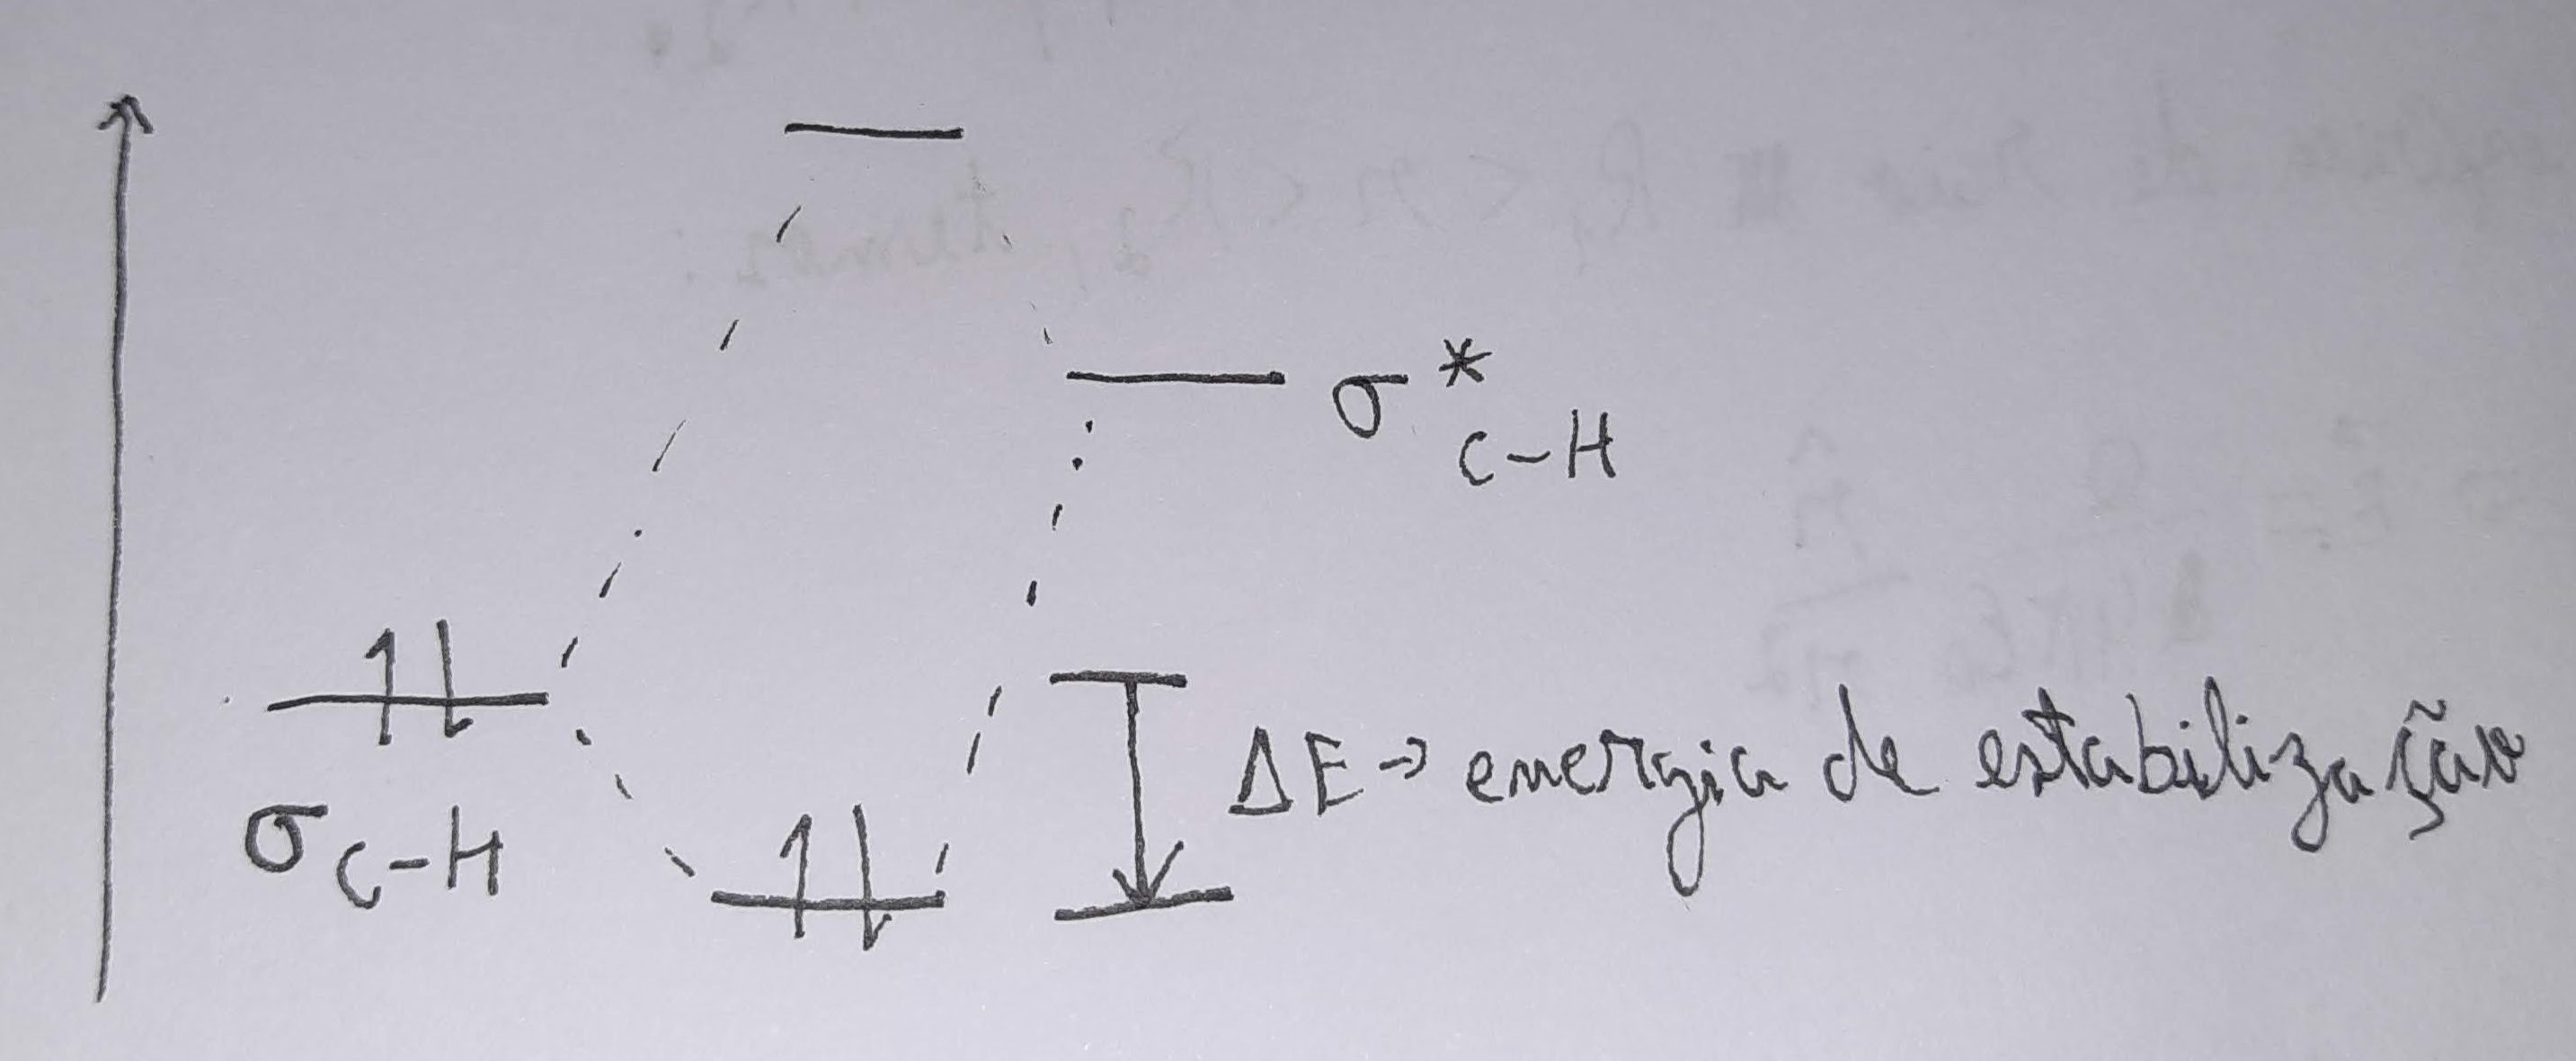 σ*C-H
σC-H
ΔE → energia de estabilização